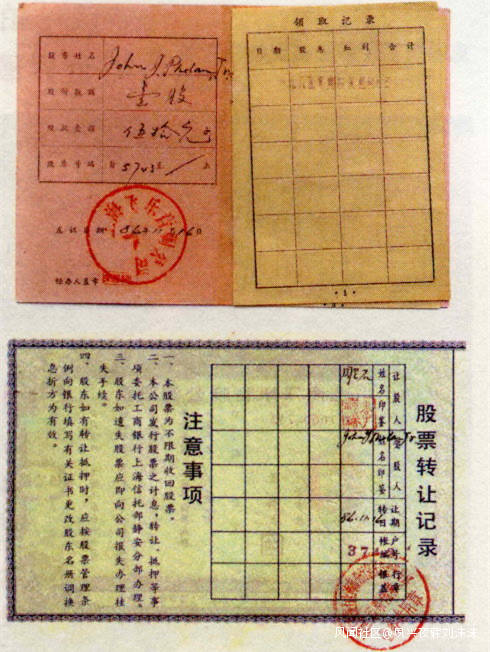 股票姓名 John J. Phelan, Jr.
股份数额 壹股
股款金额 伍拾元
股票号码 自5743至 / 止
上海飞乐音响公司
86年11月14日
经办人盖章
领取记录
日期 股息 红利 合计
·1·
股票转让记录
让股人姓名印签
受股人姓名印签
John J. Phelan, Jr.
转让日期
86.11.14
37
注意事项
一、本股票为不限期收回股票。
二、本公司发行股票之计息，转让、抵押等事
项委托工商银行上海信托部静安分部办理。
三、股东如遗失股票应即向公司报失办理挂
失手续。
四、股东如有转让抵押时，应按股票管理条
例向银行填写有关证书更改股东名册调换
息折方为有效。
风闻社区@夙兴夜寐刘沫沫